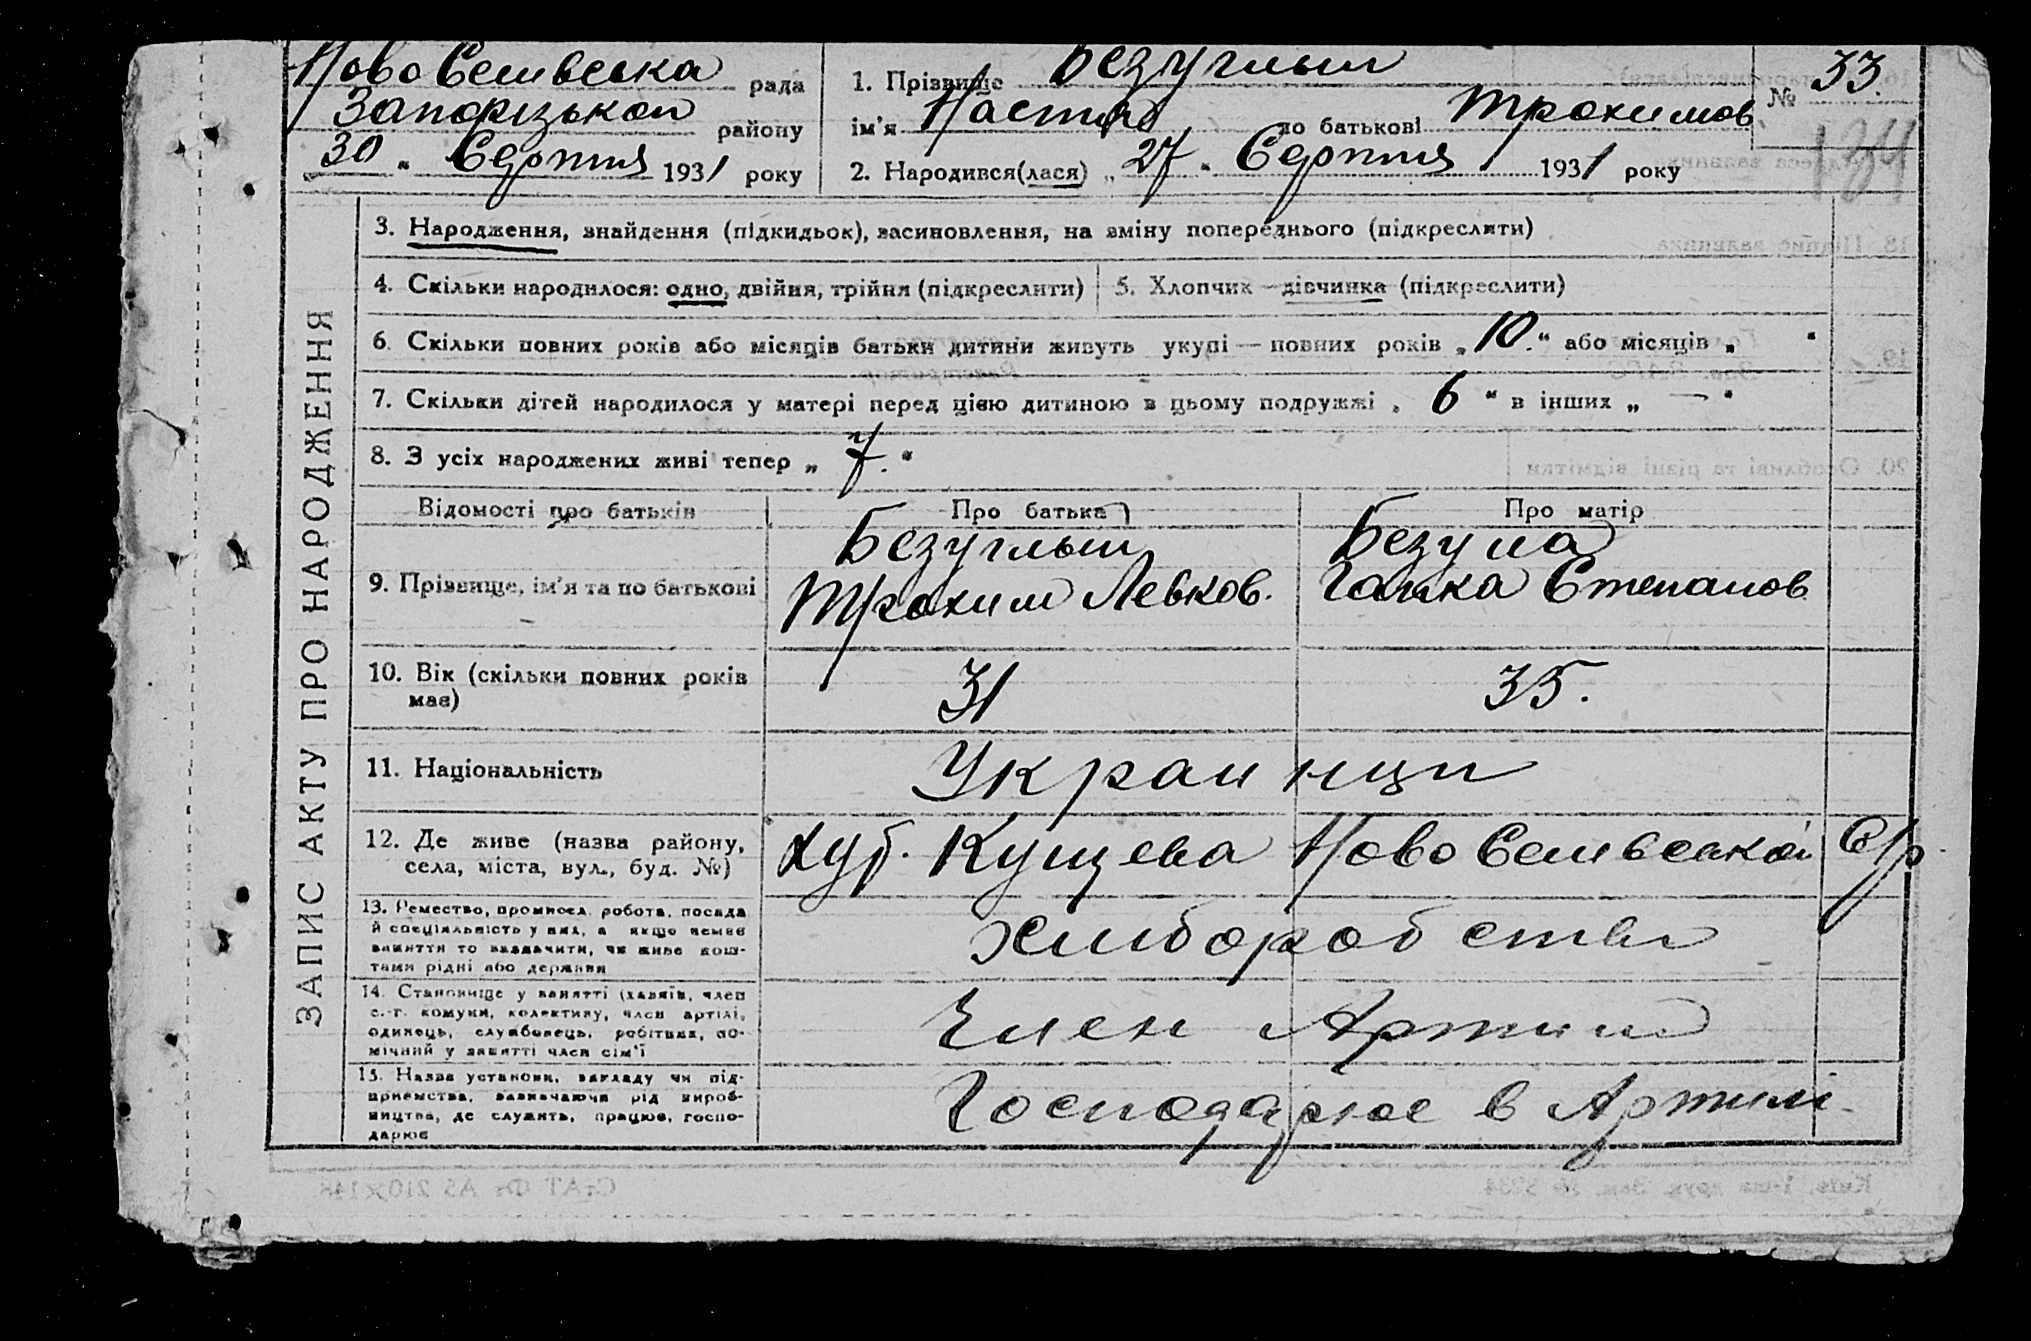 Ново Селивська рада
Запорізькой району
30 „ Серпня 1931 року
1. Прізвище Безуглый
ім'я Настя по батькові Трохимов
2. Народився(лася) „ 27 " Серпня 1931 року
№ 33.
184
ЗАПИС АКТУ ПРО НАРОДЖЕННЯ
3. Народження, знайдення (підкидьок), засиновлення, на зміну попереднього (підкреслити)
4. Скільки народилося: одно, двійня, трійня (підкреслити) 5. Хлопчик—дівчинка (підкреслити)
6. Скільки повних років або місяців батьки дитини живуть укупі — повних років „ 10. " або місяців „ "
7. Скільки дітей народилося у матері перед цією дитиною в цьому подружжі „ 6 " в інших „ — "
8. З усіх народжених живі тепер „ 7. "
Відомості про батьків Про батька Про матір
9. Прізвище, ім'я та по батькові
Безуглый
Трохим Левков.
Безугла
Галька Степанов
10. Вік (скільки повних років
має)
31
35.
11. Національність
Украинци
12. Де живе (назва району,
села, міста, вул., буд. №)
хут. Кущева Ново Селивськой С/р.
13. Ремество, промисел, робота, посада
й спеціяльність у них, а якщо немає
заняття то зазначити, чи живе кош-
тами рідні або держави
Хлиборобство
14. Становище у занятті (хазяїн, член
с.-г. комуни, колективу, член артілі,
одинець, службовець, робітник, по-
мічний у занятті член сім'ї
Член Артили
15. Назва установи, закладу чи під-
приємства, зазначаючи рід вироб-
ництва, де служить, працює, госпо-
дарює
Господарює в Артилі